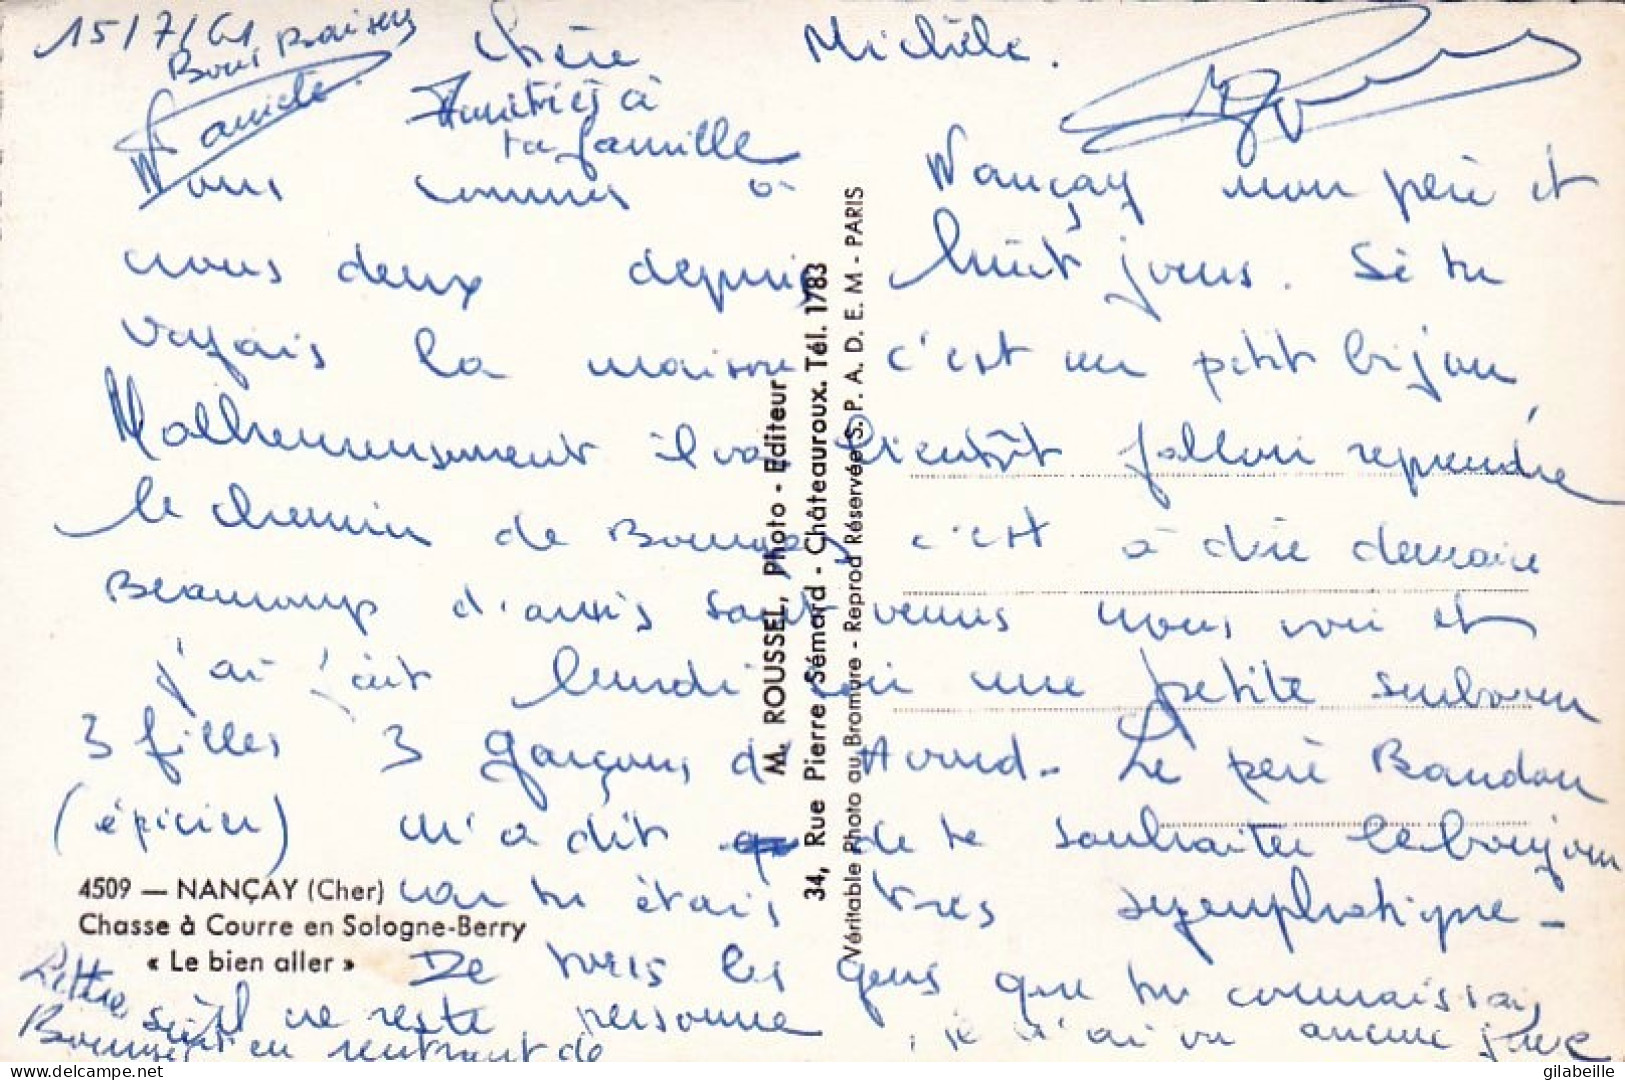 15/7/61
Bons Baisers
Chère Michèle.
Amitiés à
ta famille
Nous sommes à Nançay mon père et
nous deux depuis huit jours. Si tu
voyais la maison c'est un petit bijou
Malheureusement il va bientôt falloir reprendre
le chemin de c'est à dire demain
Beaucoup d'amis sont venus nous voir et
j'ai fait lundi soir une petite surboum
3 filles 3 garçons, Le père Baudon
(épicier) m'a dit de te souhaiter le bonjour
car tu étais très sympathique -
De tous les gens que tu connaissais,
je n'ai vu aucune
s'il ne reste personne
Lettre
en rentrant de
4509 — NANÇAY (Cher)
Chasse à Courre en Sologne-Berry
« Le bien aller »
M. ROUSSEL, Photo - Editeur
34, Rue Pierre Sémard - Châteauroux. Tél. 1783
Véritable Photo au Bromure - Reprod Réservée S. P. A. D. E. M - PARIS
gilabeille